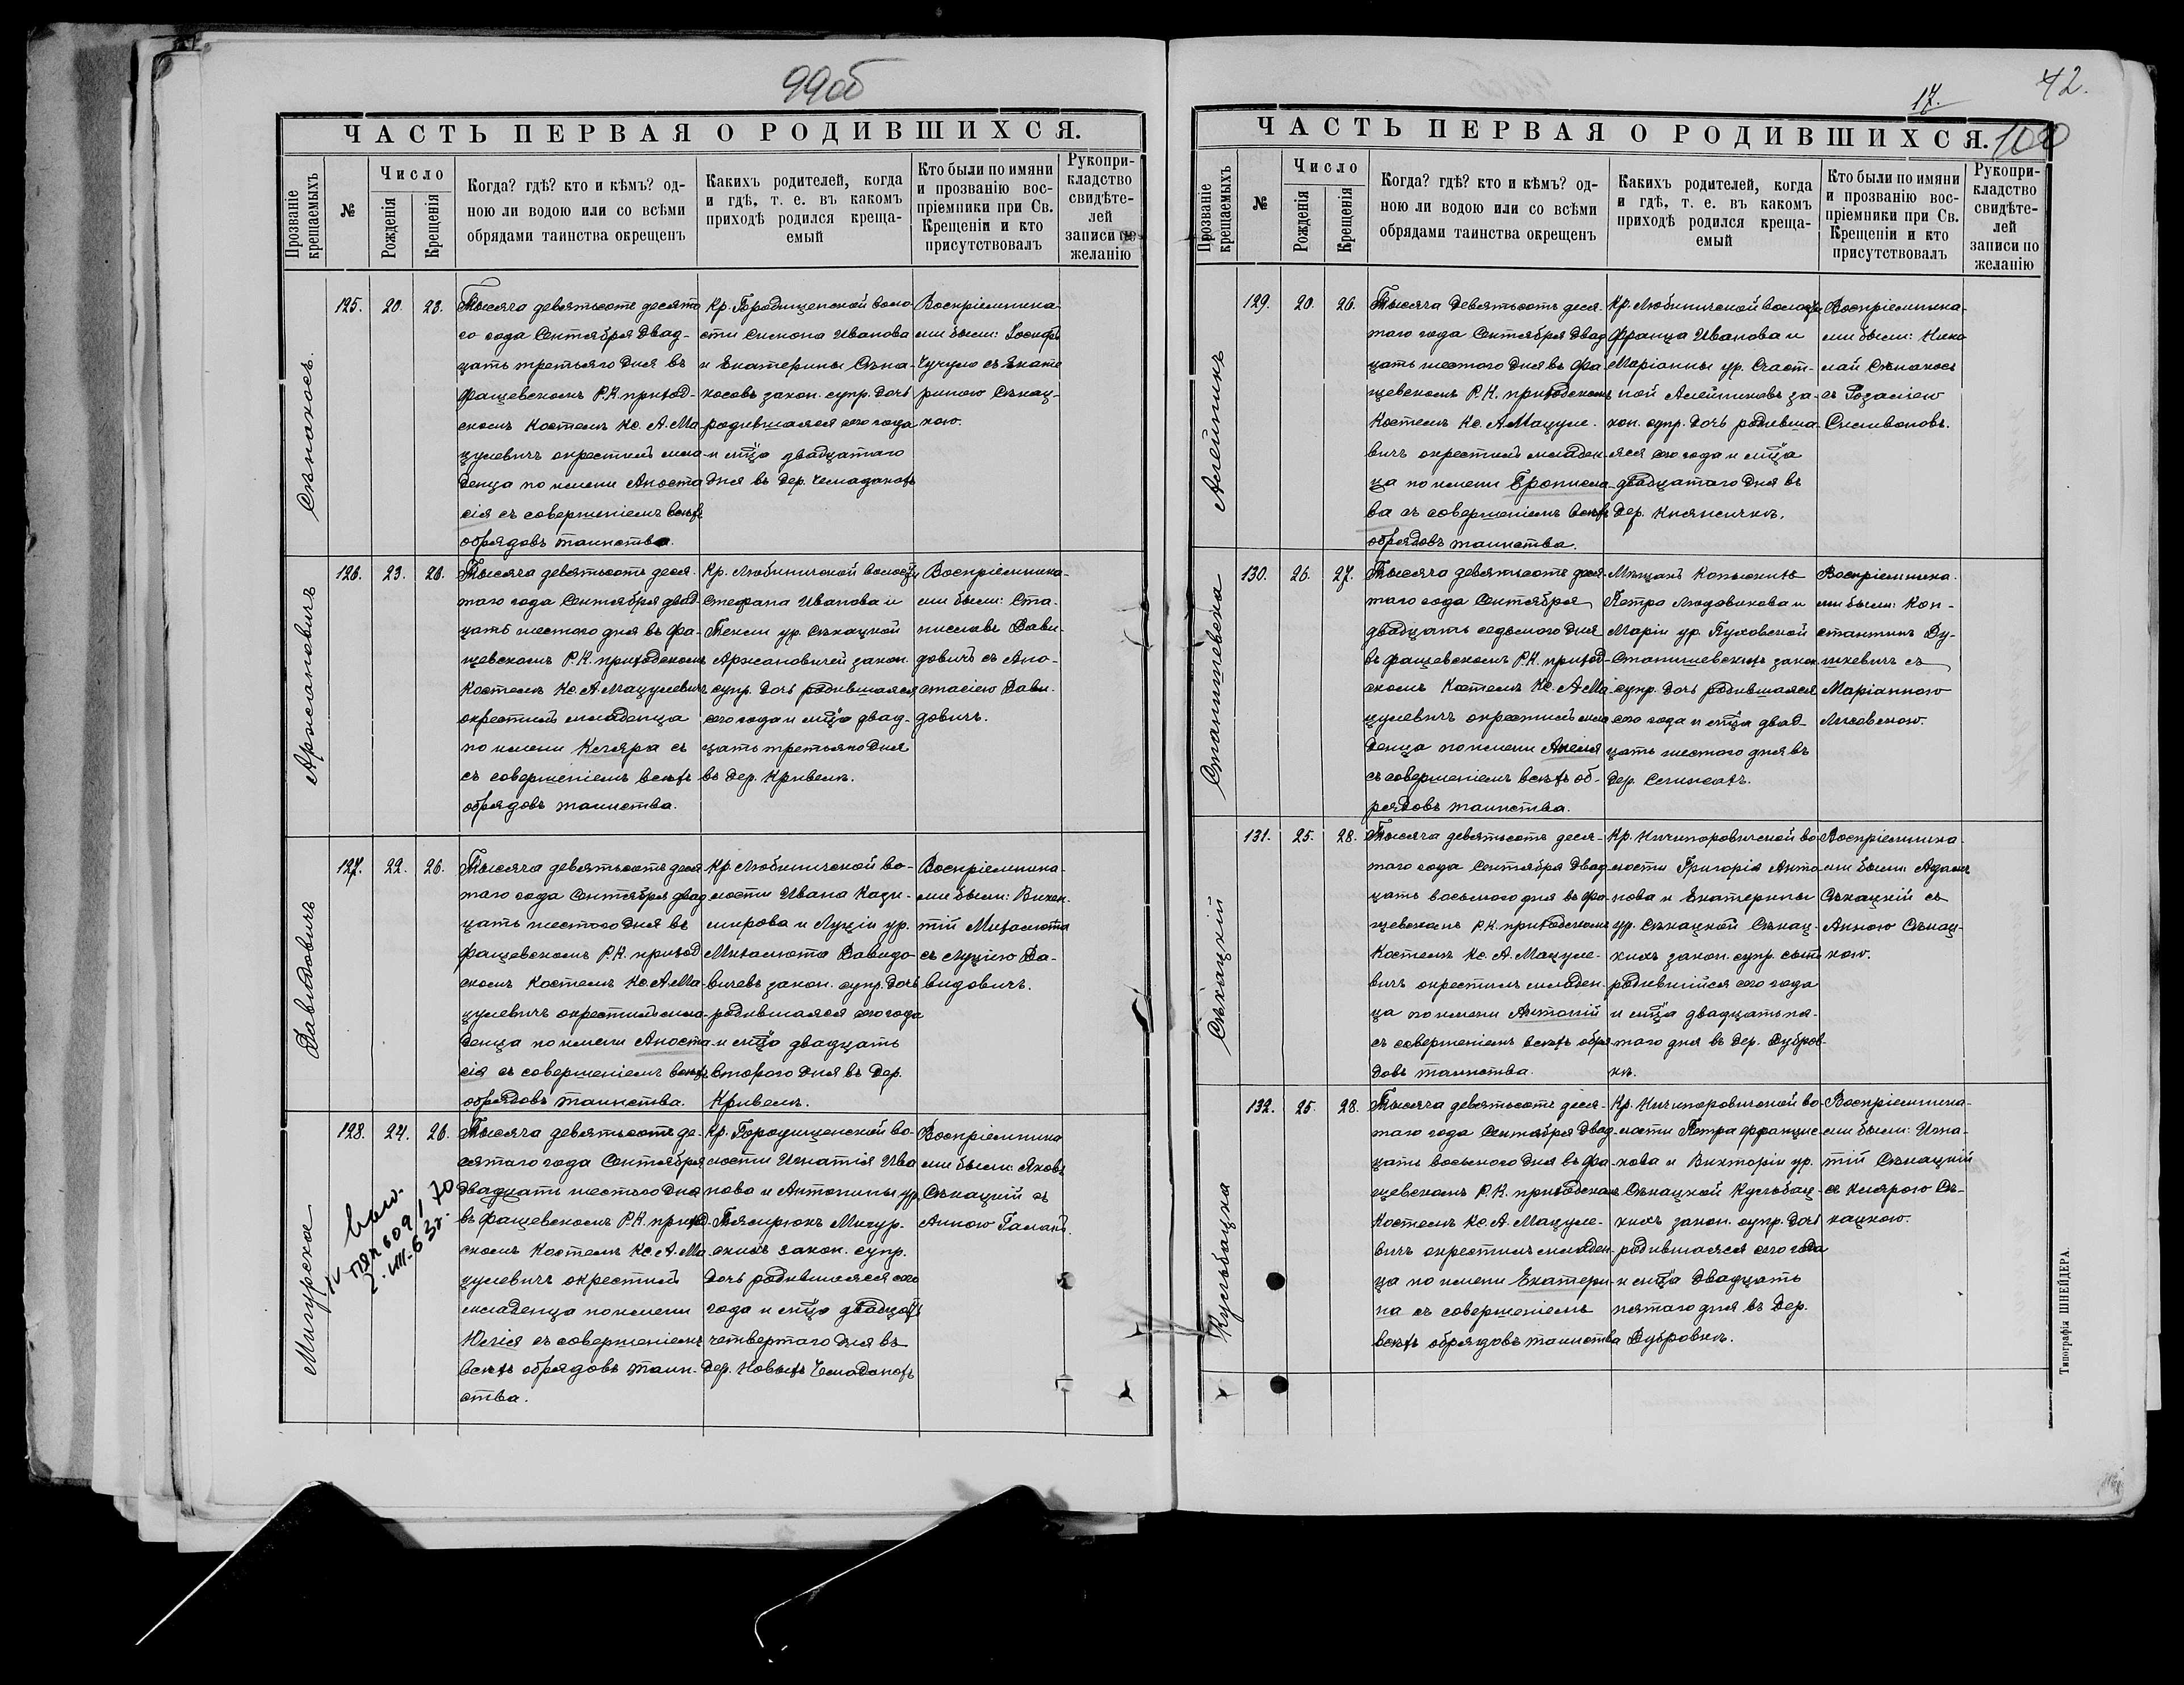 99об
ЧАСТЬ ПЕРВАЯ О РОДИВШИХСЯ.
Прозваніе крещаемыхъ
№
Число
Рожденія
Крещенія
Когда? гдѣ? кто и кѣмъ? од-
ною ли водою или со всѣми
обрядами таинства окрещенъ
Какихъ родителей, когда
и гдѣ, т. е. въ какомъ
приходѣ родился креща-
емый
Кто были по имяни
и прозванію вос-
пріемники при Св.
Крещеніи и кто
присутствовалъ
Рукопри-
кладство
свидѣте-
лей
записи по
желанію
Сѣнакосъ.
125.
20.
23.
Тысяча девятьсотъ десята
го года Сентября двад-
цать третьяго дня въ
Фащевскомъ Р.К. приход-
скомъ Костелѣ Кс. А. Ма
цулевичъ окрестилъ мла-
денца по имени Анаста
сія съ совершеніемъ всѣхъ
обрядовъ таинства.
Кр. Городищенской воло
сти Симона Иванова
и Екатерины Сѣна-
косовъ закон. супр. дочь
родившаяся сего года
и м-ца двадцатаго
дня въ дер. Чемаданахъ
Воспріемника-
ми были: Іосифъ
Чучуло съ Екате
риною Сѣкац-
кою.
Аржановичъ
126.
23.
26.
Тысяча девятьсотъ деся-
таго года Сентября двад-
цать шестого дня въ Фа-
щевскомъ Р.К. приходскомъ
Костелѣ Кс. А. Мацулевичъ
окрестилъ младенца
по имени Кляра съ
съ совершеніемъ всѣхъ
обрядовъ таинства.
Кр. Любиничской волости
Стефана Иванова и
Текли ур. Сѣкацкой
Аржановичей закон.
супр. дочь родившаяся
сего года и м-ца двад-
цать третьяго дня
въ дер. Кривелѣ.
Воспріемника-
ми были: Ста-
ниславъ Дави-
довичъ съ Ана-
стасіею Дави-
довичъ.
Давидовичъ
127.
22.
26.
Тысяча девятьсотъ деся
таго года Сентября двад
цать шестого дня въ
Фащевскомъ Р.К. приход
скомъ Костелѣ Кс. А. Ма-
цулевичъ окрестилъ мла-
денца по имени Анаста-
сія съ совершеніемъ всѣхъ
обрядовъ таинства.
Кр. Любиничской во-
лости Ивана Кази-
мирова и Луціи ур.
Михалюта Давидо-
вичевъ закон. супр. дочь
родившаяся сего года
и м-ца двадцать
второго дня въ дер.
Кривелѣ.
Воспріемника-
ми были: Викен-
тій Михалюта
съ Луціею Да-
видовичъ.
Мигурска
128.
24.
26.
Тысяча девятьсотъ де-
сятаго года Сентября
двадцать шестого дня
въ Фащевскомъ Р.К. приход-
скомъ Костелѣ Кс. А. Ма
цулевичъ окрестилъ
младенца по имени
Юлія съ совершеніемъ
всѣхъ обрядовъ таин-
ства.
Кр. Городищенской во-
лости Игнатія Ива
нова и Антонины ур.
Тямрюкъ Мигур-
скихъ закон. супр.
дочь родившаяся сего
года и м-ца двадцать
четвертаго дня въ
дер. Новыхъ Чемаданахъ
Воспріемника
ми были: Яковъ
Сѣкацкій съ
Анною Галакъ.
42.
17.
100
ЧАСТЬ ПЕРВАЯ О РОДИВШИХСЯ.
Прозваніе крещаемыхъ
№
Число
Рожденія
Крещенія
Когда? гдѣ? кто и кѣмъ? од-
ною ли водою или со всѣми
обрядами таинства окрещенъ
Какихъ родителей, когда
и гдѣ, т. е. въ какомъ
приходѣ родился креща-
емый
Кто были по имяни
и прозванію вос-
пріемники при Св.
Крещеніи и кто
присутствовалъ
Рукопри-
кладство
свидѣте-
лей
записи по
желанію
Алейникъ
129.
20.
26.
Тысяча девятьсотъ деся-
таго года Сентября двад
цать шестого дня въ Фа-
щевскомъ Р.К. приходскомъ
Костелѣ Кс. А Мацуле-
вичъ окрестилъ младен-
ца по имени Бронисла-
ва съ совершеніемъ всѣхъ
обрядовъ таинства.
Кр. Любиничской волости
Франца Иванова и
Маріанны ур. Счаст-
ной Алейниковъ за-
кон. супр. дочь родивша-
яся сего года и м-ца
двадцатаго дня въ
дер. Княжичкѣ.
Воспріемника-
ми были: Нико
лай Сѣнакосъ
съ Розаліею
Селивоновъ.
Станишевска
130.
26.
27.
Тысяча девятьсотъ деся-
таго года Сентября
двадцать седьмого дня
въ Фащевскомъ Р.К. приход-
скомъ Костелѣ Кс. А Ма-
цулевичъ окрестилъ мла
денца по имени Анеля
съ совершеніемъ всѣхъ об-
рядовъ таинства.
Мѣщанъ Копысскихъ
Петра Людовикова и
Маріи ур. Пуховской
Станишевскихъ закон.
супр. дочь родившаяся
сего года и м-ца двад-
цать шестого дня въ
дер.
Воспріемника-
ми были: Кон-
стантинъ Ду-
шкевичъ съ
Маріанною
Лисовскою.
Сѣкацкій
131.
25.
28.
Тысяча девятьсотъ деся-
таго года Сентября двад
цать восьмого дня въ Фа
щевскомъ Р.К. приходскомъ
Костелѣ Кс. А. Мацуле-
вичъ окрестилъ младен-
ца по имени Антоній
съ совершеніемъ всѣхъ обря
довъ таинства.
Кр. Ничипоровичской во
лости Григорія Анто
нова и Екатерины
ур. Сѣкацкой Сѣкац-
кихъ закон. супр. сынъ
родившійся сего года
и м-ца двадцать пя-
таго дня въ дер. Дубров-
кѣ.
Воспріемника-
ми были: Адамъ
Сѣкацкій съ
Анною Сѣкац-
кою.
Кульбацка
132.
25.
28.
Тысяча девятьсотъ деся-
таго года Сентября двад-
цать восьмого дня въ Фа-
щевскомъ Р.К. приходскомъ
Костелѣ Кс. А. Мацуле-
вичъ окрестилъ младен-
ца по имени Екатери-
на съ совершеніемъ
всѣхъ обрядовъ таинства
Кр. Ничипоровичской во-
лости Петра Францис-
кова и Викторіи ур.
Сѣкацкой Кульбац-
кихъ закон. супр. дочь
родившаяся сего года
и м-ца двадцать
пятаго дня въ дер.
Дубровкѣ.
Воспріемника-
ми были: Игна-
тій Сѣкацкій
съ Клярою Сѣ-
кацкою.
Типографія ШНЕЙДЕРА.